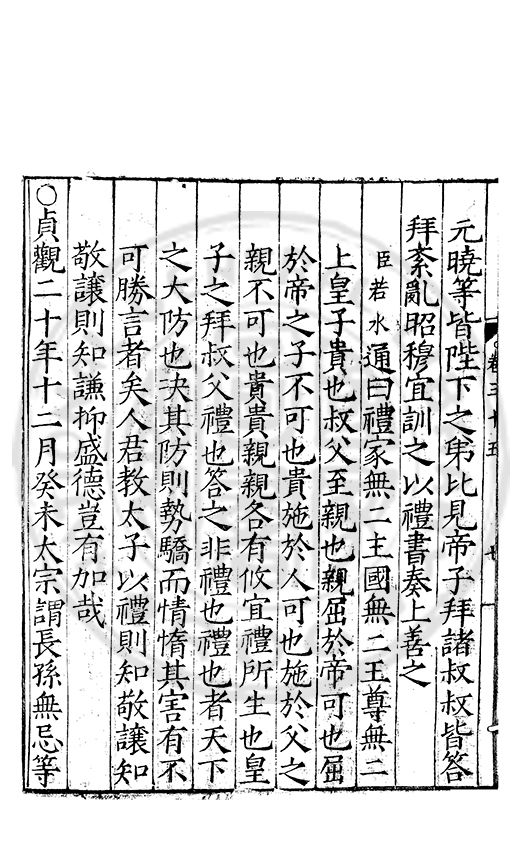 卷三十五
元曉等皆陛下之弟比見帝子拜諸叔叔皆答
拜紊亂昭穆宜訓之以禮書奏上善之
臣若水通曰禮家無二主國無二王尊無二
上皇子貴也叔父至親也親屈於帝可也屈
於帝之子不可也貴施於人可也施於父之
親不可也貴貴親親各有攸宜禮所生也皇
子之拜叔父禮也答之非禮也禮也者天下
之大防也决其防則勢驕而情惰其害有不
可勝言者矣人君教太子以禮則知敬讓知
敬讓則知謙抑盛德豈有加哉
○貞觀二十年十二月癸未太宗謂長孫無忌等